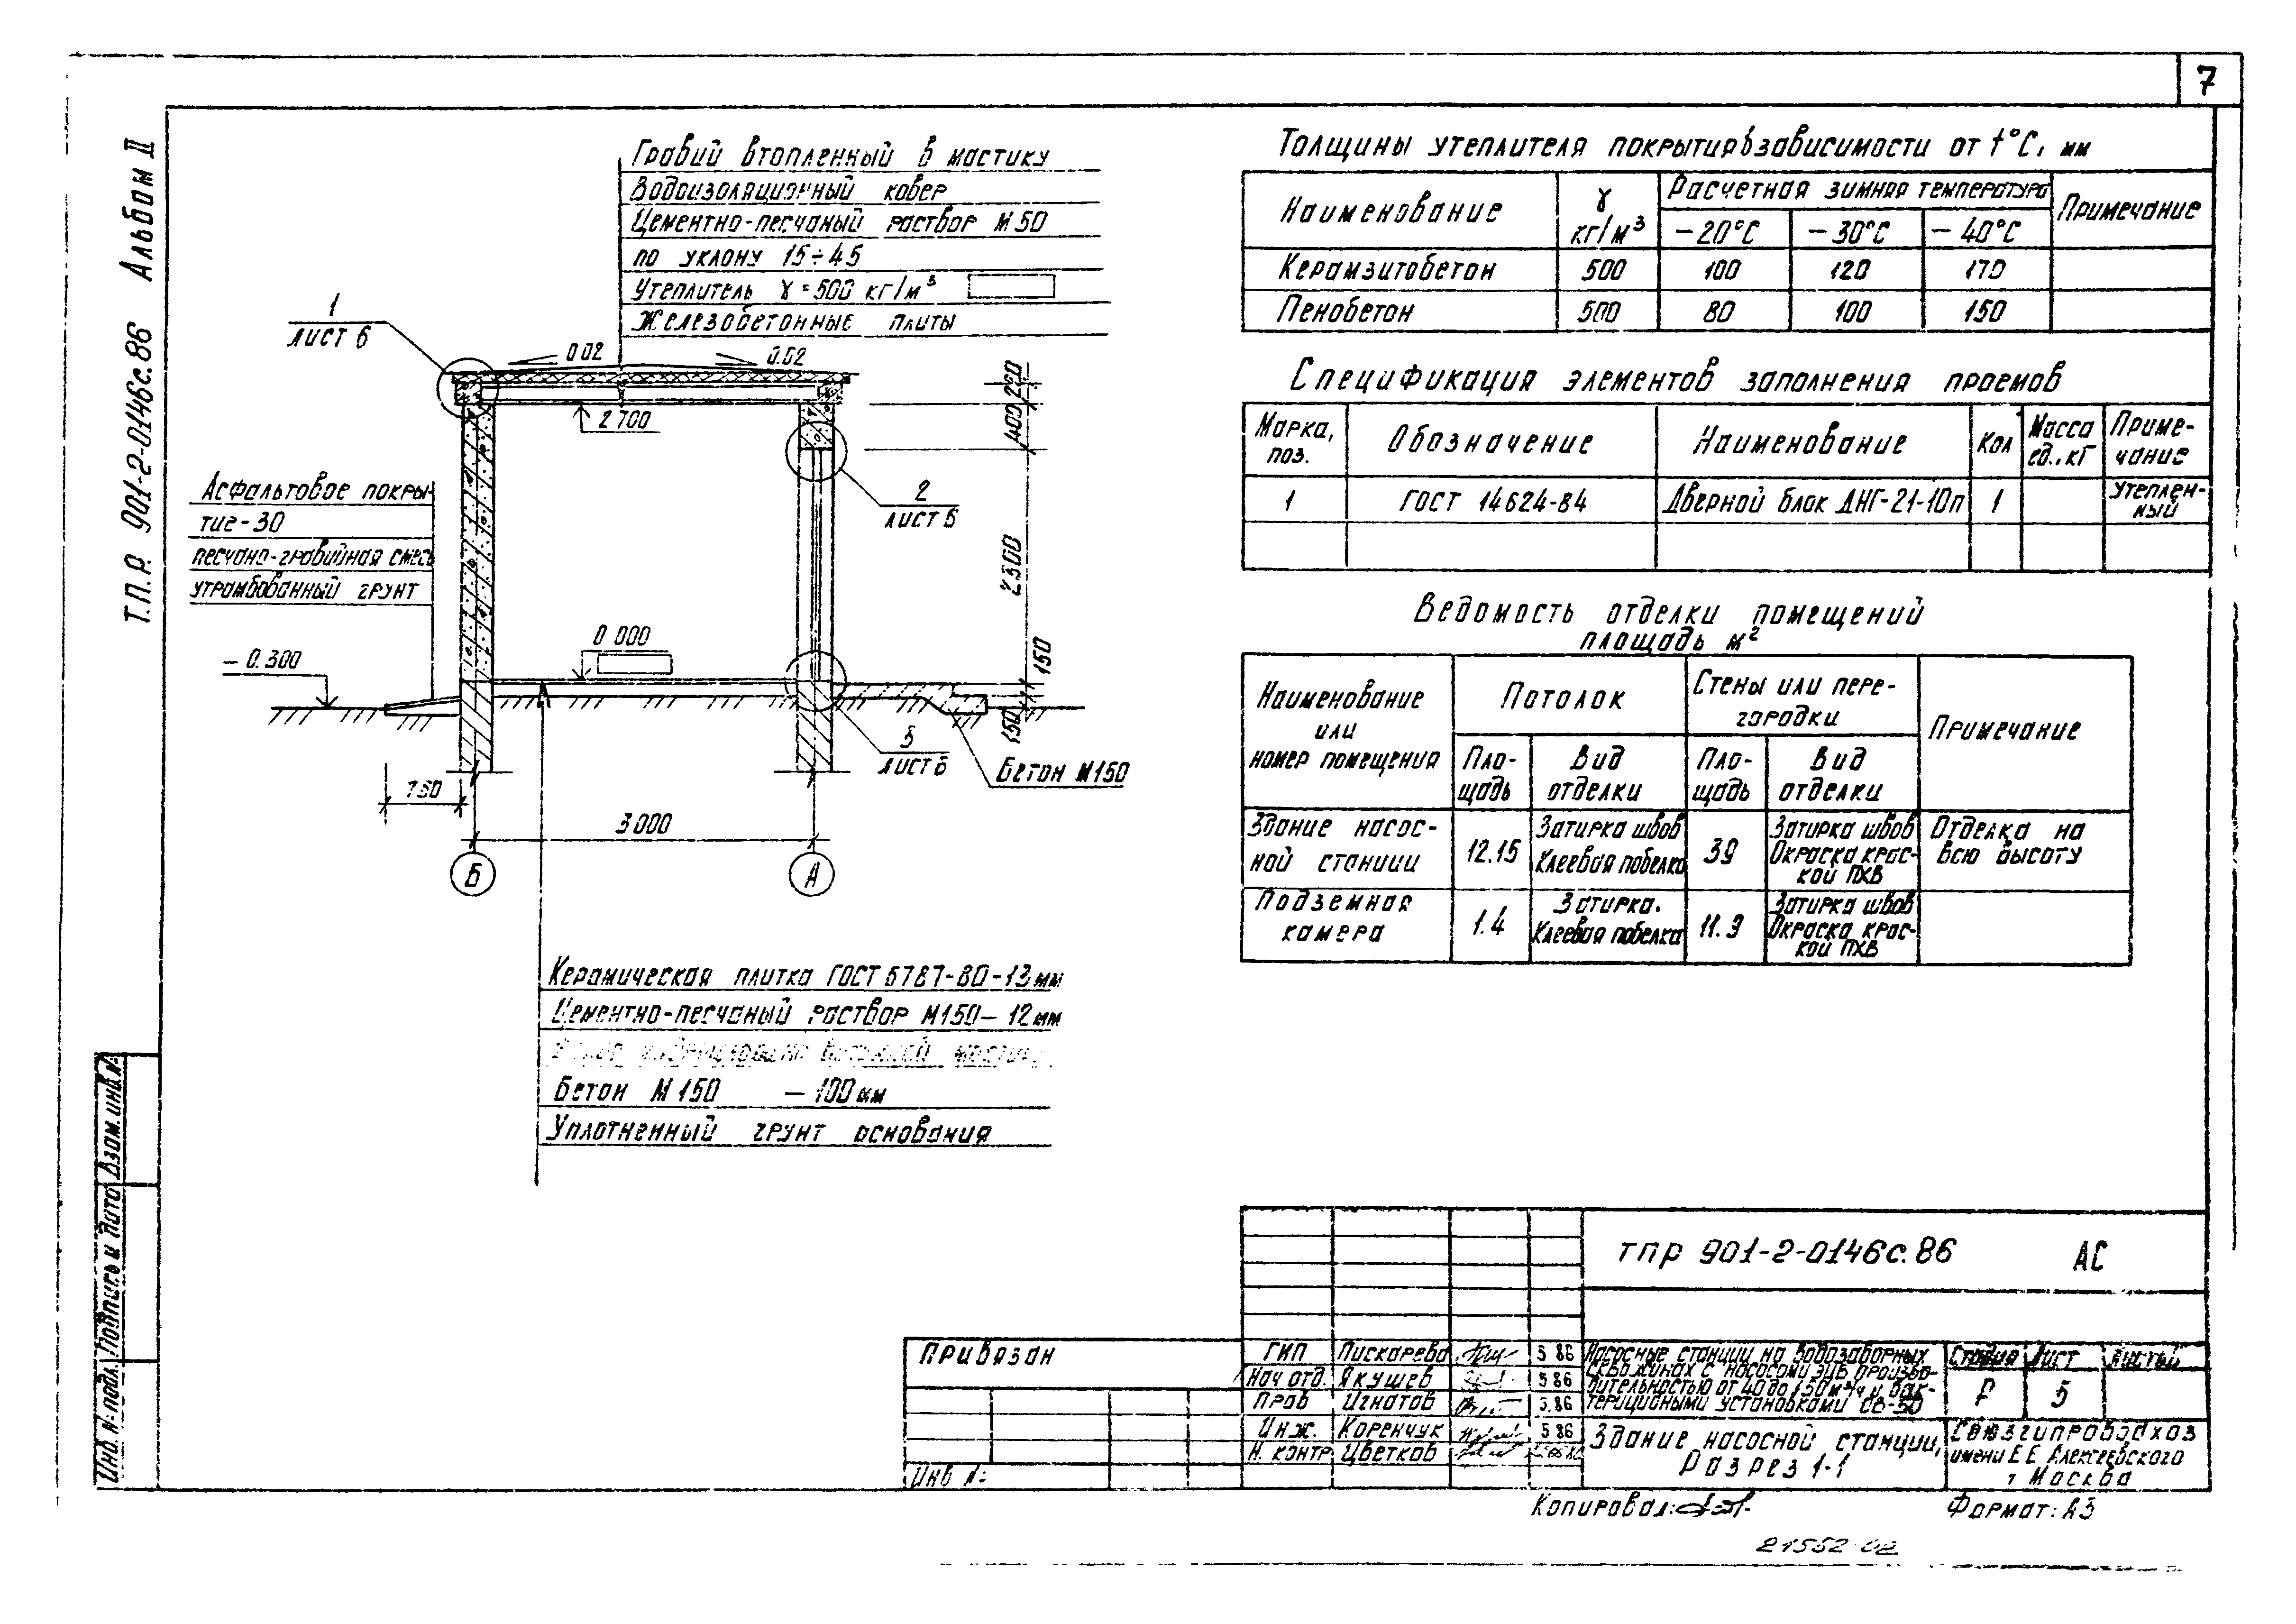 7
Т.П.Р. 901-2-0146с.86 Альбом II
Гравий втопленный в мастику
Водоизоляционный ковер
Цементно-песчаный раствор М50
по уклону 15÷45
Утеплитель γ=500 кг/м³
Железобетонные плиты
1
лист 6
0.02
0.02
2 700
260
400
2300
150
150
2
лист 6
Асфальтовое покры-
тие-30
песчано-гравийная смесь
утрамбованный грунт
- 0.300
0 000
3
лист 6
Бетон М150
750
3000
Б
А
Керамическая плитка ГОСТ 6787-80-13мм
Цементно-песчаный раствор М150-12мм
Бетон М150 - 100мм
Уплотненный грунт основания
Толщины утеплителя покрытия в зависимости от t°С, мм
Наименование
γ кг/м³
Расчетная зимняя температура
Примечание
-20°С
-30°С
-40°С
Керамзитобетон 500 100 120 170
Пенобетон 500 80 100 150
Спецификация элементов заполнения проемов
Марка, поз.
Обозначение
Наименование
Кол
Масса ед., кг
Приме-
чание
1 ГОСТ 14624-84 Дверной блок ДНГ-21-10п 1
Утеплен-
ный
Ведомость отделки помещений
площадь м²
Наименование
или
номер помещения
Потолок
Стены или пере-
городки
Примечание
Пло-
щадь
Вид
отделки
Пло-
щадь
Вид
отделки
Здание насос-
ной станции
12.15
Затирка швов
Клеевая побелка
39
Затирка швов
Окраска крас-
кой ПХВ
Отделка на
всю высоту
Подземная
камера
1.4
Затирка.
Клеевая побелка
11.9
Затирка швов
Окраска крас-
кой ПХВ
тпр 901-2-0146с.86 АС
Привязан
Инв №
ГИП Пискарева 5 86
Нач отд. Якушев 5 86
Пров Игнатов 5.86
Инж. Коренчук 5 86
Н. контр Цветков
Насосные станции на водозаборных
скважинах с насосами ЭЦВ произво-
дительностью от 40 до 150 м³/ч и бак-
терицидными установками ОВ-50
Стадия Лист Листов
Р 5
Здание насосной станции,
Разрез 1-1
Союзгипроводхоз
имени Е Е Алексеевского
г Москва
Копировал:
Формат: А3
21552-02
Инв. № подл. Подпись и дата Взам. инв. №